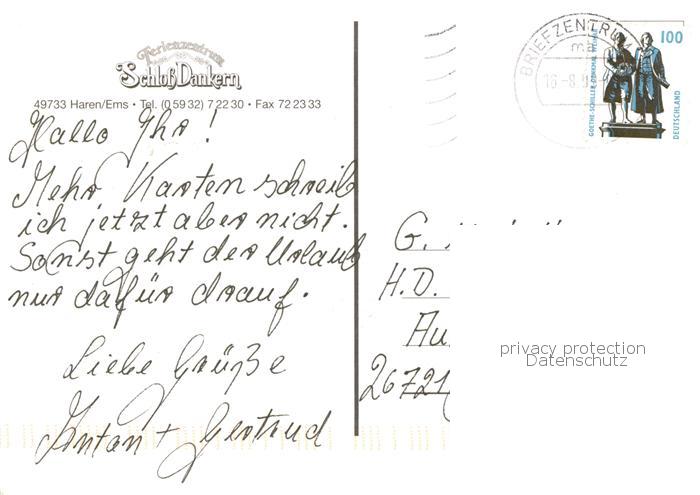 Ferienzentrum
Schloß Dankern
49733 Haren/Ems • Tel. (0 59 32) 7 22 30 • Fax 72 23 33
Hallo Ihr!
Mehr Karten schreib
ich jetzt aber nicht.
Sonst geht der Urlaub
nur dafür drauf.
Liebe Grüße
Anton + Gertrud
BRIEFZENTRUM
100
GOETHE-SCHILLER-DENKMAL WEIMAR
DEUTSCHLAND
G.
H.D.
26721
privacy protection
Datenschutz